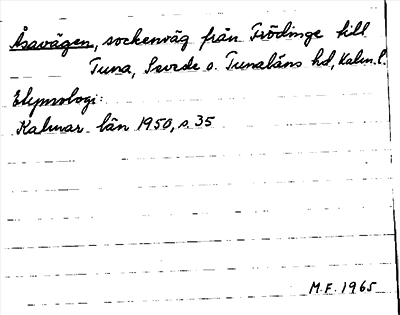 Åsavägen, sockenväg från Frödinge till
Tuna, Sevede o. Tunaläns hd, Kalm. l.
Etymologi:
Kalmar län 1950, s. 35
M.F. 1965